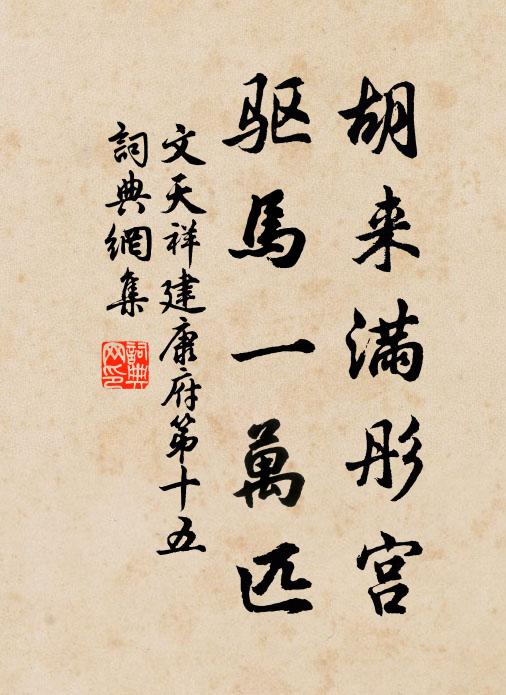 胡来满彤宫
驱馬一萬匹
文天祥建康府第十五
詞典網集
詞典網印